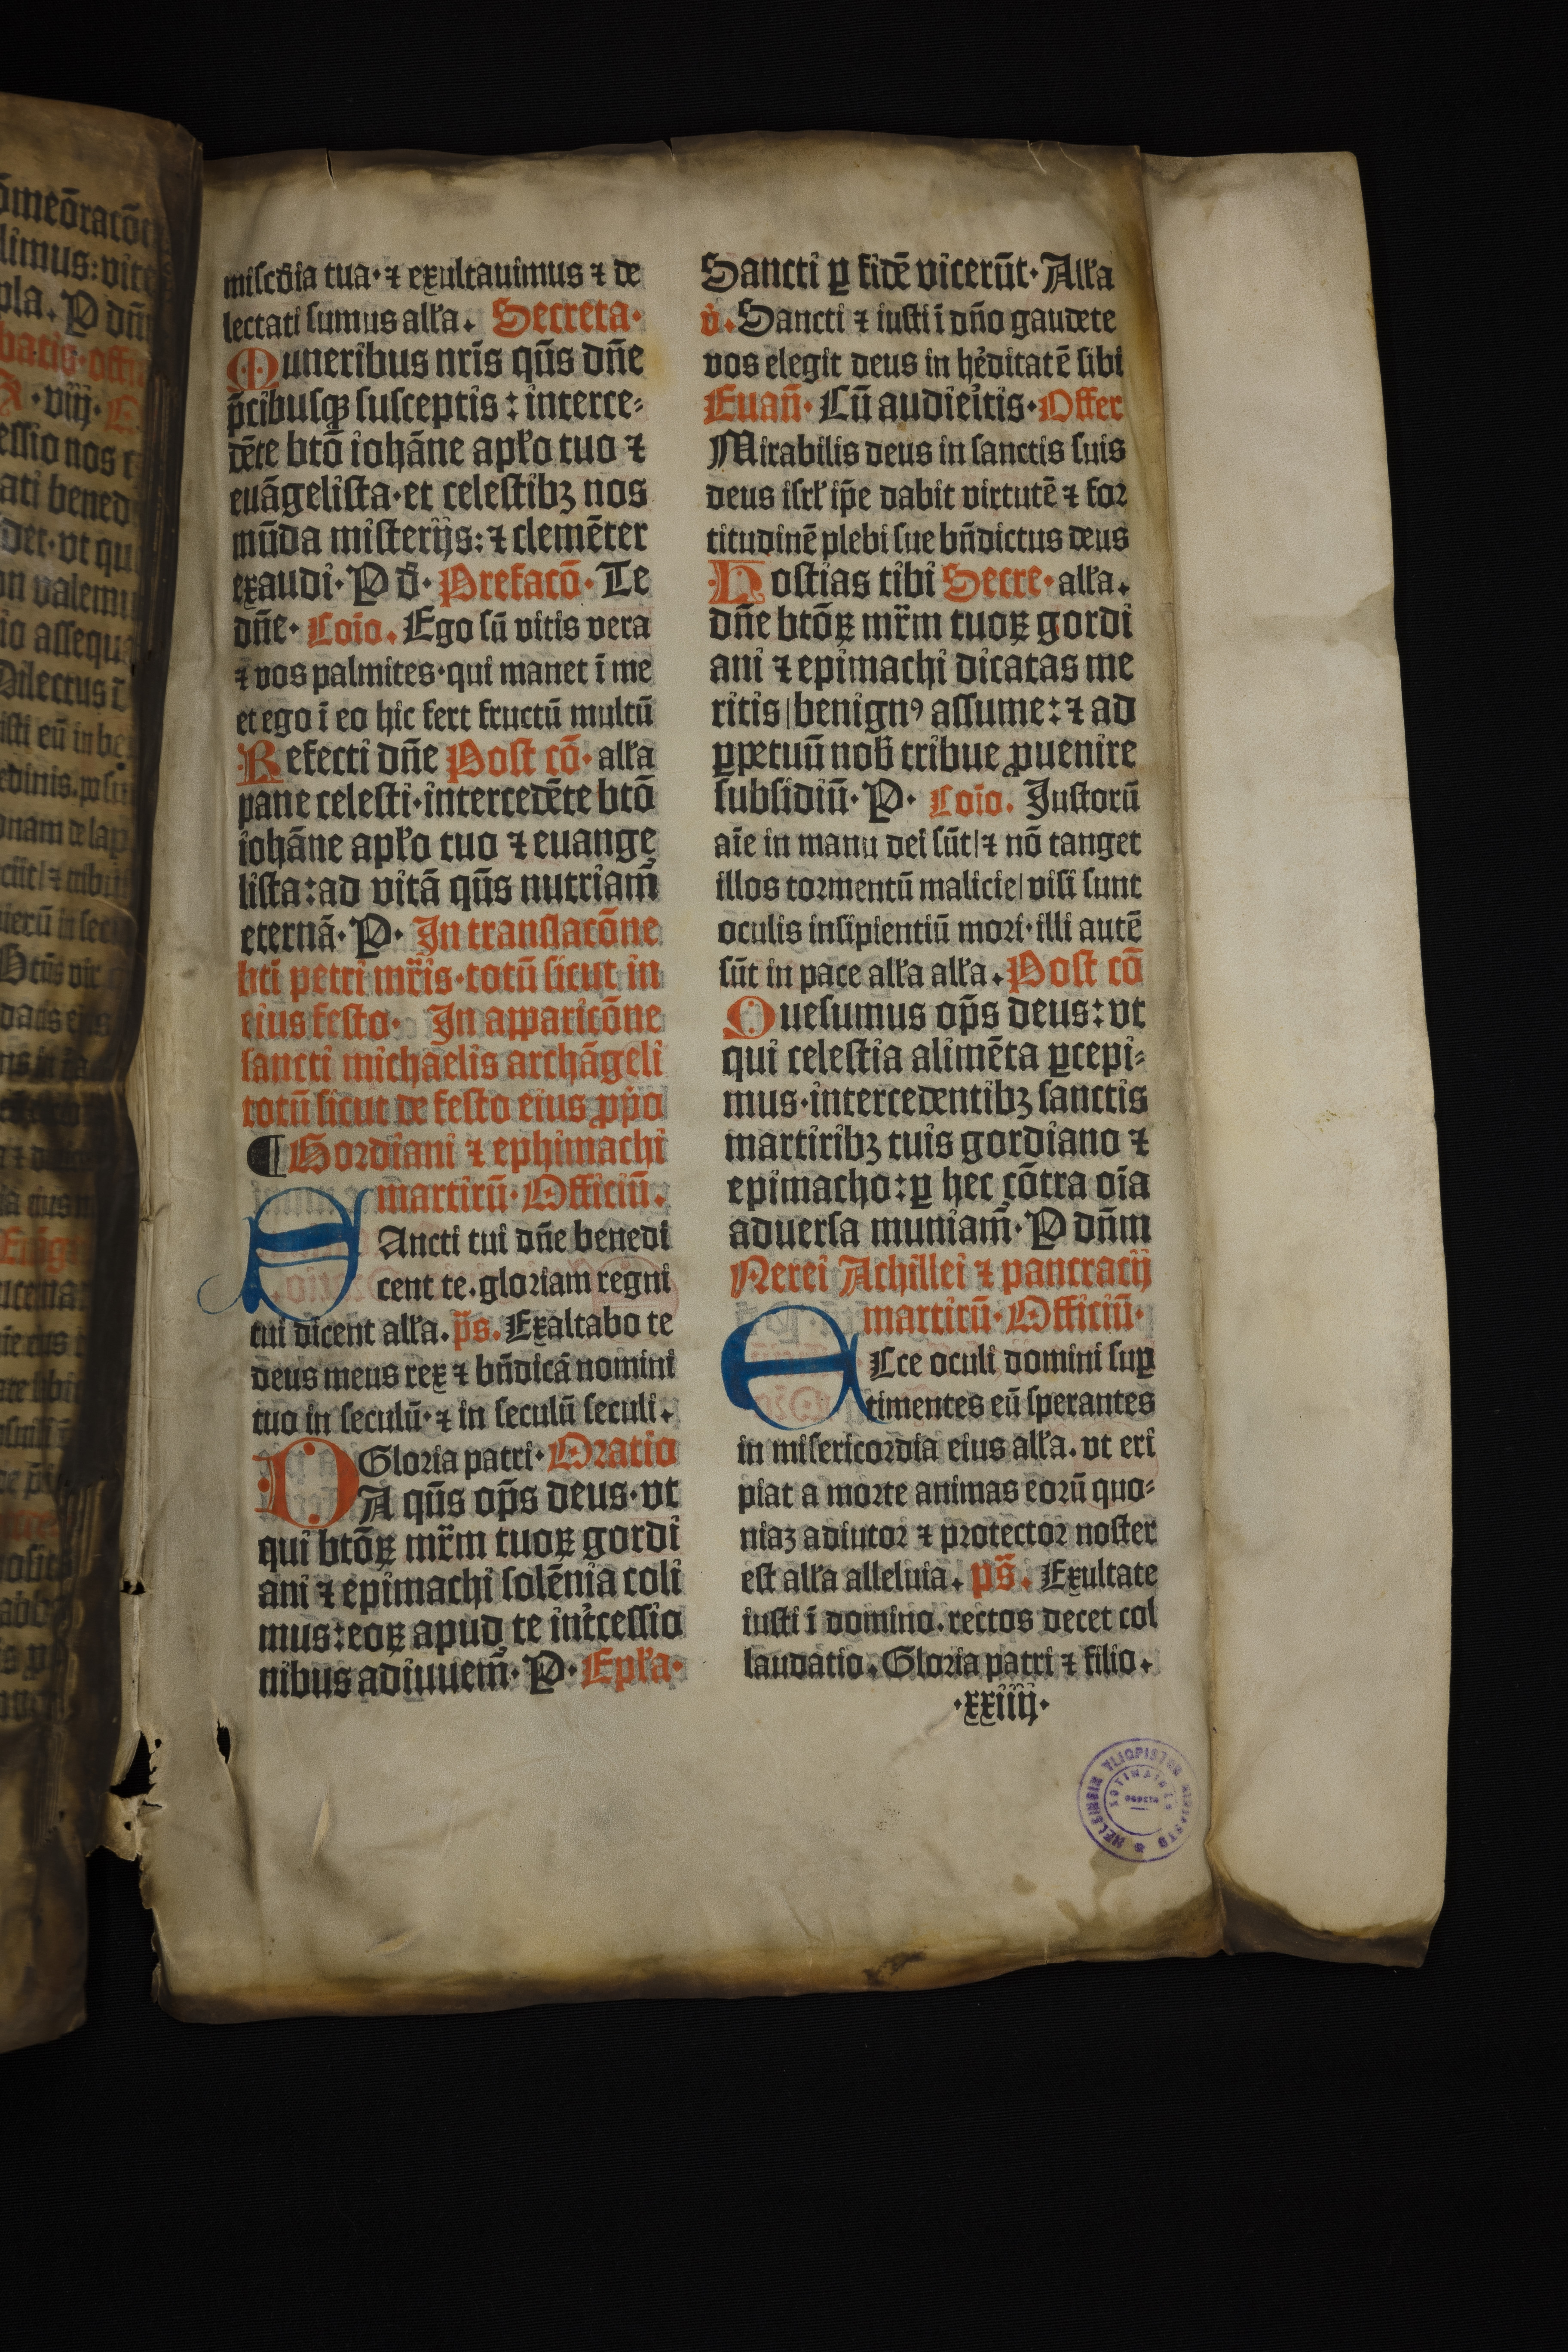 miſcd̄ia tua· ⁊ exultauimus ⁊ de
lectati ſumus alľa. Secreta·
Muneribus nr̄is qūs dn̄e
p̄cibuſqꝫ ſuſceptis : interce⸗
dēte btō iohāne apľo tuo ⁊
euāgeliſta· et celeſtibꝫ nos
mūda miſterijs: ⁊ clemēter
exaudi· P d̄· Prefacō· Te
dn̄e· Coīo. Ego ſū vitis vera
⁊ vos palmites· qui manet ī me
et ego ī eo hic fert fructū multū
Refecti dn̄e Poſt cō· alľa
pane celeſti· intercedēte btō
iohāne apľo tuo ⁊ euange
liſta: ad vitā qūs nutriam̄
eternā· P· In tranſlacōne
bti petri mr̄is· totū ſicut in
eius feſto· In apparicōne
ſancti michaelis archāgeli
totū ſicut de feſto eius ꝓpo
¶ Gordiani ⁊ ephimachi
martirū· Officiū.
SAncti tui dn̄e benedi
cent te. gloriam regni
tui dicent alľa. p̄s. Exaltabo te
deus meus rex ⁊ bn̄dicā nomini
tuo in ſeculū· ⁊ in ſeculū ſeculi.
Gloria patri· Oratio
DA qūs op̄s deus· vt
qui btōꝝ mr̄m tuoꝝ gordi
ani ⁊ epimachi ſolēnia coli
mus: eoꝝ apud te int̄ceſſio
nibus adiuuem̄· P· Epľa·
Sancti ꝑ fidē vicerūt· Alľa
v̄. Sancti ⁊ iuſti ī dn̄o gaudete
vos elegit deus in hēditatē ſibi
Euan̄· Cū audieīītis· Offer
Mirabilis deus in ſanctis ſuis
deus iſrľ ip̄e dabit virtutē ⁊ for
titudinē plebi ſue bn̄dictus deus
Hoſtias tibi Secre· alľa.
dn̄e btōꝝ mr̄m tuoꝝ gordi
ani ⁊ epimachi dicatas me
ritis | benignꝰ aſſume: ⁊ ad
ꝑpetuū nob̄ tribue ꝓuenire
ſubſidiū· P· Coīo. Juſtorū
aīe in manu dei ſūt | ⁊ nō tanget
illos tormentū malicie | viſi ſunt
oculis inſipientiū mori· illi autē
ſūt in pace alľa alľa. Poſt cō
Queſumus op̄s deus: vt
qui celeſtia alimēta ꝑcepi⸗
mus· intercedentibꝫ ſanctis
martiribꝫ tuis gordiano ⁊
epimacho: ꝑ hec cōtra oīa
aduerſa muniam̄· P dn̄m
Nerei Achillei ⁊ pancracij
martirū· Officiū·
ECce oculi domini ſuꝑ
timentes eū ſperantes
in miſericordia eius alľa. vt eri
piat a morte animas eorū quo⸗
niaꝫ adiutor ⁊ protector noſter
eſt alľa alleluia. ps̄. Exultate
iuſti ī domino. rectos decet col
laudatio. Gloria patri ⁊ filio.
·xxiiij·
HELSINGIN YLIOPISTON KIRJASTO